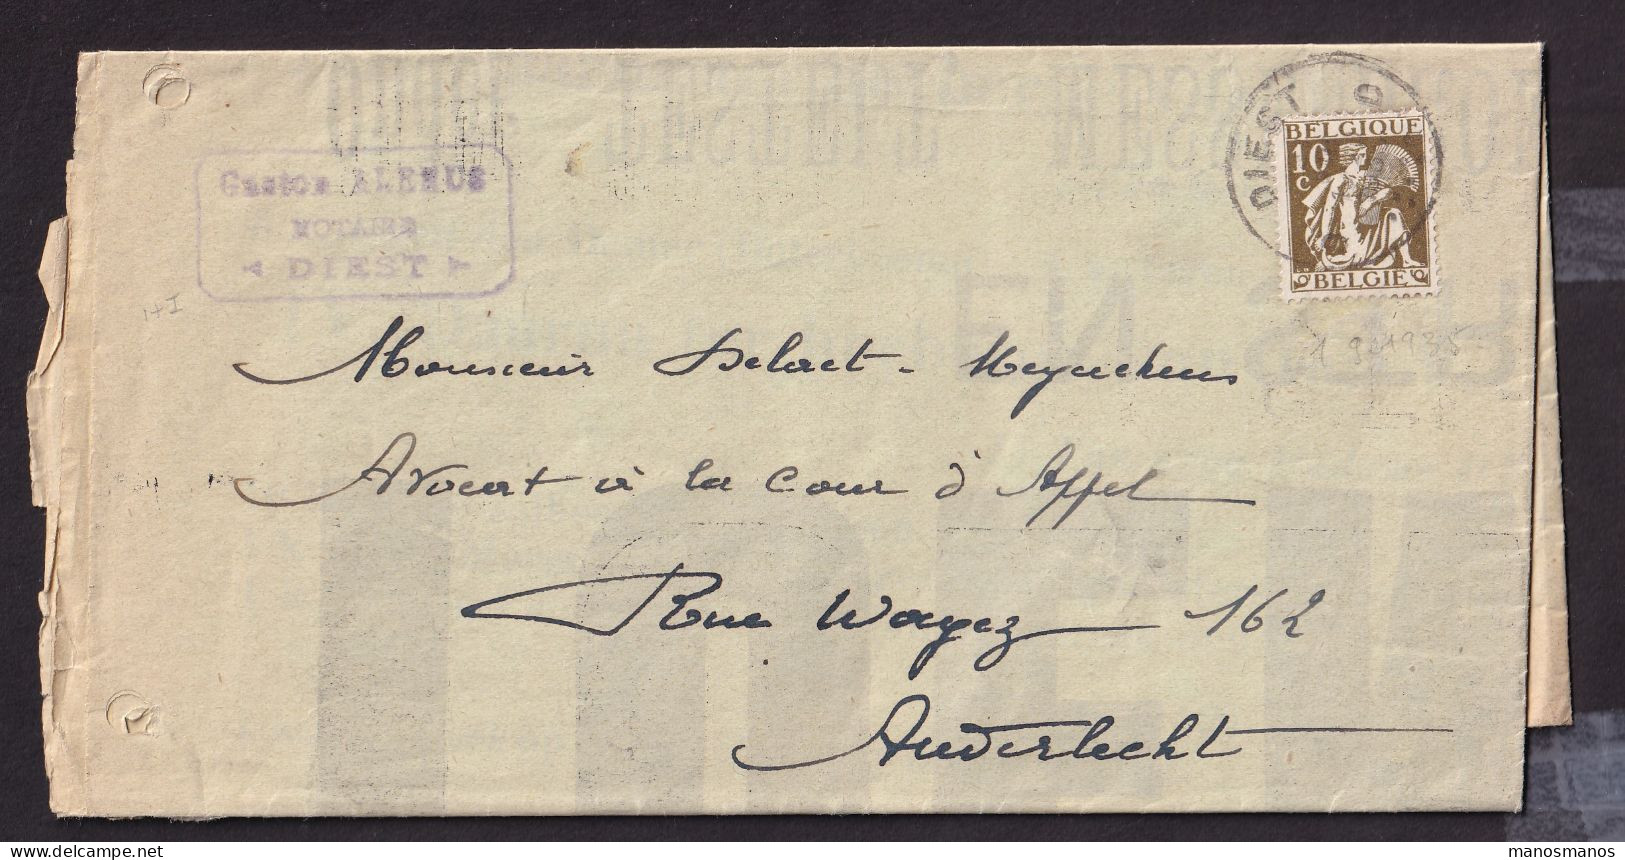 Gaston ALENUS
NOTAIRE
A DIEST
DIEST
BELGIQUE
10
c
BELGIË
1935
Monsieur Delaet - Meynckens
Avocat à la Cour d'Appel
Rue Wayez 162
Anderlecht
manosmanos